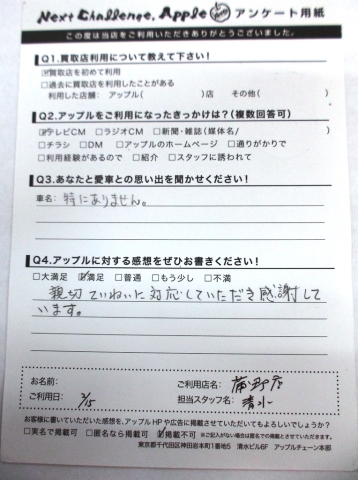 Next Challenge. Apple アンケート用紙
この度は当店をご利用いただきありがとうございました。
Q1.買取店利用について教えて下さい!
☑買取店を初めて利用
□過去に買取店を利用したことがある
利用した店舗: アップル( )店 その他( )
Q2.アップルをご利用になったきっかけは?(複数回答可)
☑テレビCM □ラジオCM □新聞・雑誌(媒体名/ )
□チラシ □DM □アップルのホームページ □通りがかりで
□利用経験があるので □紹介 □スタッフに誘われて
Q3.あなたと愛車との思い出を聞かせてください!
車名: 特にありません。
Q4.アップルに対する感想をぜひお書きください!
□大満足 ☑満足 □普通 □もう少し □不満
親切ていねいに対応していただき感謝して
います。
お名前: ご利用店名:
ご利用日: 2/15 担当スタッフ名: 清水
お客様に書いていただいた感想を、アップルHPや広告に掲載させていただいてもよろしいでしょうか?
□実名で掲載可 □匿名なら掲載可 ☑掲載不可 ※ご記入がない場合は匿名での掲載とさせていただきます。
東京都千代田区神田岩本町1番地5 清水ビル6F アップルチェーン本部